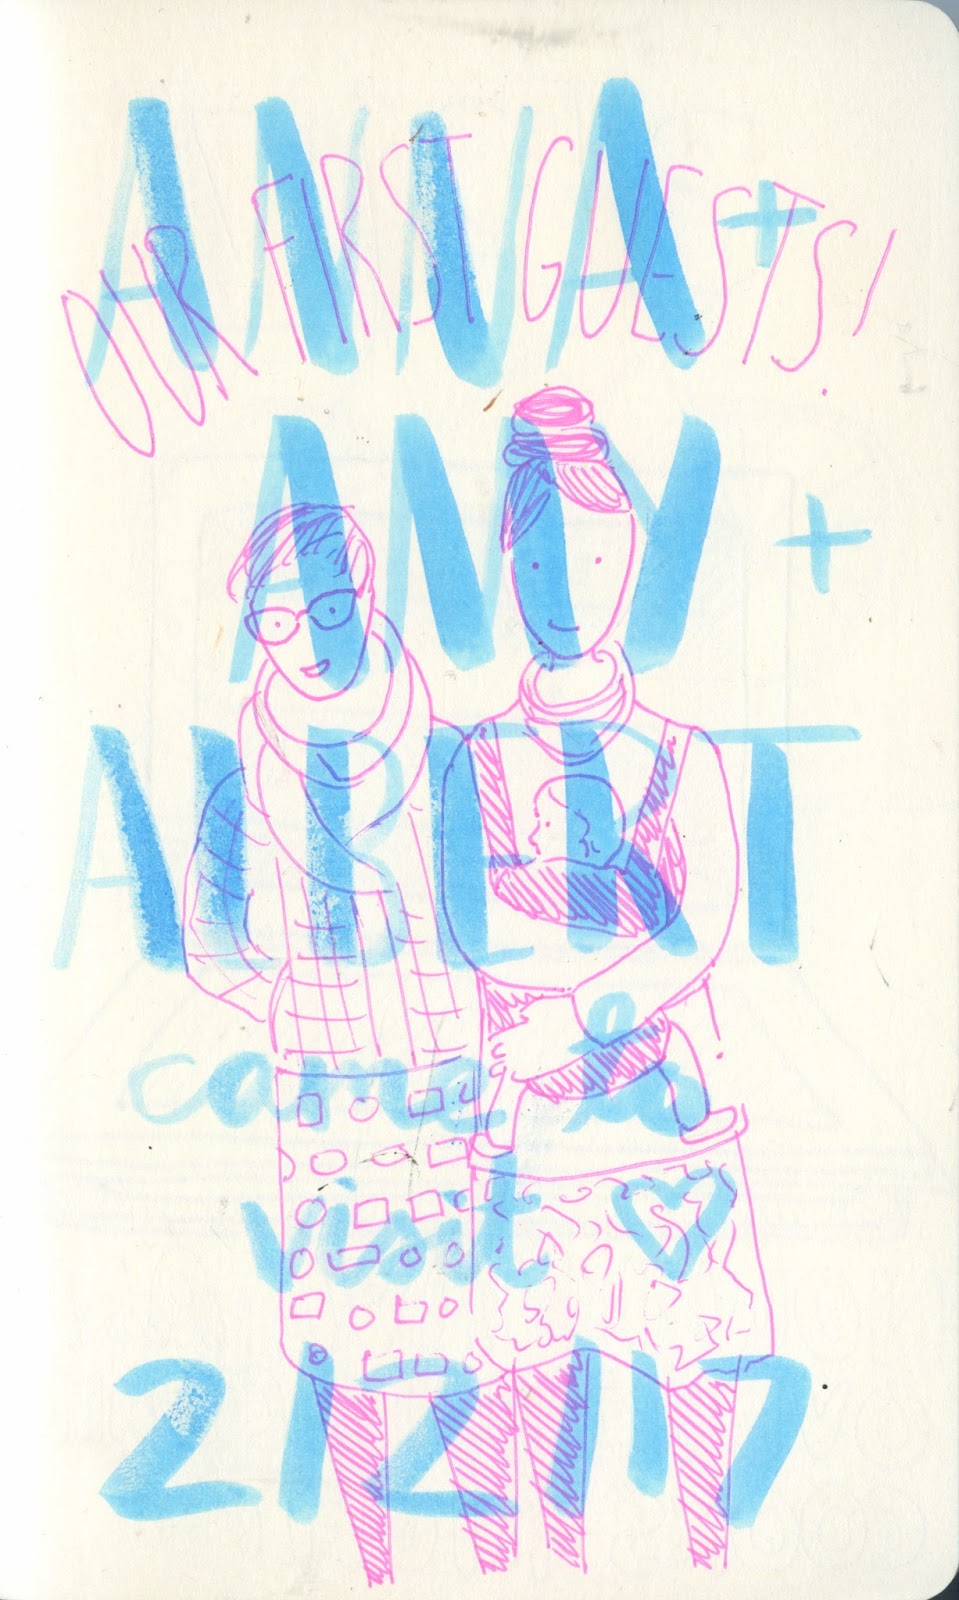 OUR FIRST GUESTS!
ANNA +
AMY +
ALBERT
came to
visit ♡
2/2/17